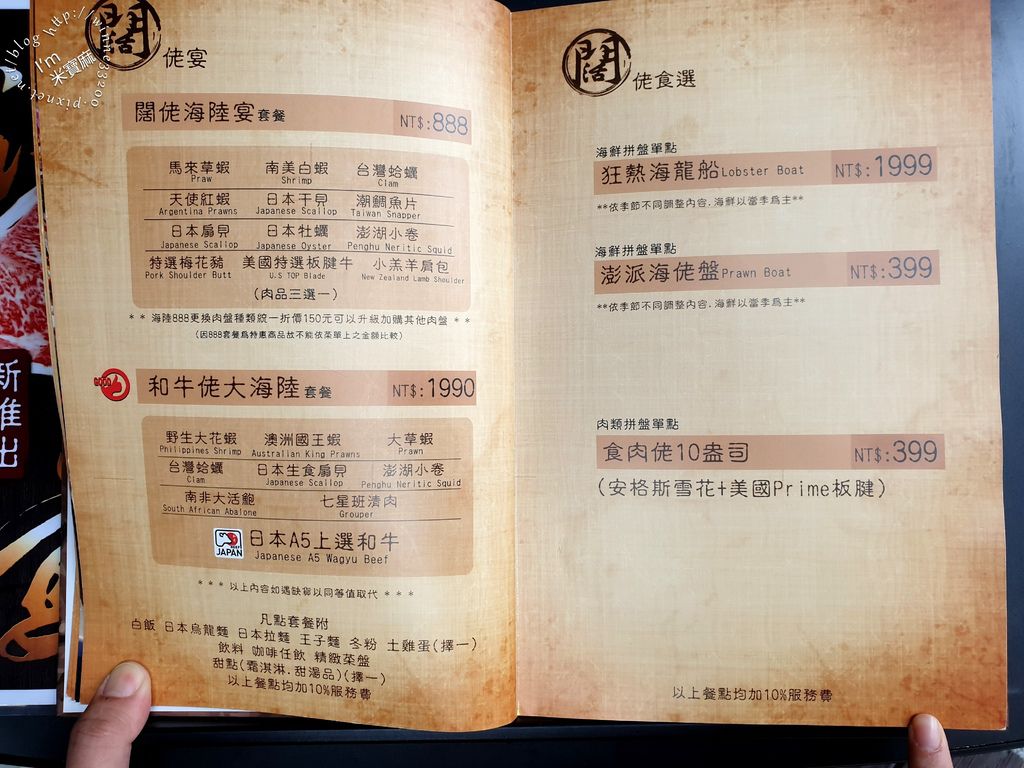 I'm 米寶麻
blog http://winnie33200.pixnet.net/
闊 佬宴
闊佬海陸宴 套餐 NT$:888
馬來草蝦 南美白蝦 台灣蛤蠣
Praw Shrimp Clam
天使紅蝦 日本干貝 潮鯛魚片
Argentina Prawns Japanese Scallop Taiwan Snapper
日本扇貝 日本牡蠣 澎湖小卷
Japanese Scallop Japanese Oyster Penghu Neritic Squid
特選梅花豬 美國特選板腱牛 小羔羊肩包
Pork Shoulder Butt U.S TOP Blade New Zealand Lamb Shoulder
(肉品三選一)
** 海陸888更換肉盤種類統一折價150元可以升級加購其他肉盤 **
(因888套餐為特惠商品故不能依菜單上之金額比較)
和牛佬大海陸 套餐 NT$:1990
野生大花蝦 澳洲國王蝦 大草蝦
Philippines Shrimp Australian King Prawns Prawn
台灣蛤蠣 日本生食扇貝 澎湖小卷
Clam Japanese Scallop Penghu Neritic Squid
南非大活鮑 七星班清肉
South African Abalone Grouper
JAPAN 日本A5上選和牛
Japanese A5 Wagyu Beef
*** 以上內容如遇缺貨以同等值取代 ***
凡點套餐附
白飯 日本烏龍麵 日本拉麵 王子麵 冬粉 土雞蛋(擇一)
飲料 咖啡任飲 精緻菜盤
甜點(霜淇淋.甜湯品)(擇一)
以上餐點均加10%服務費
闊 佬食選
海鮮拼盤單點
狂熱海龍船 Lobster Boat NT$:1999
**依季節不同調整內容.海鮮以當季為主**
海鮮拼盤單點
澎派海佬盤 Prawn Boat NT$:399
**依季節不同調整內容.海鮮以當季為主**
肉類拼盤單點
食肉佬10盎司 NT$:399
(安格斯雪花+美國Prime板腱)
以上餐點均加10%服務費
新推出